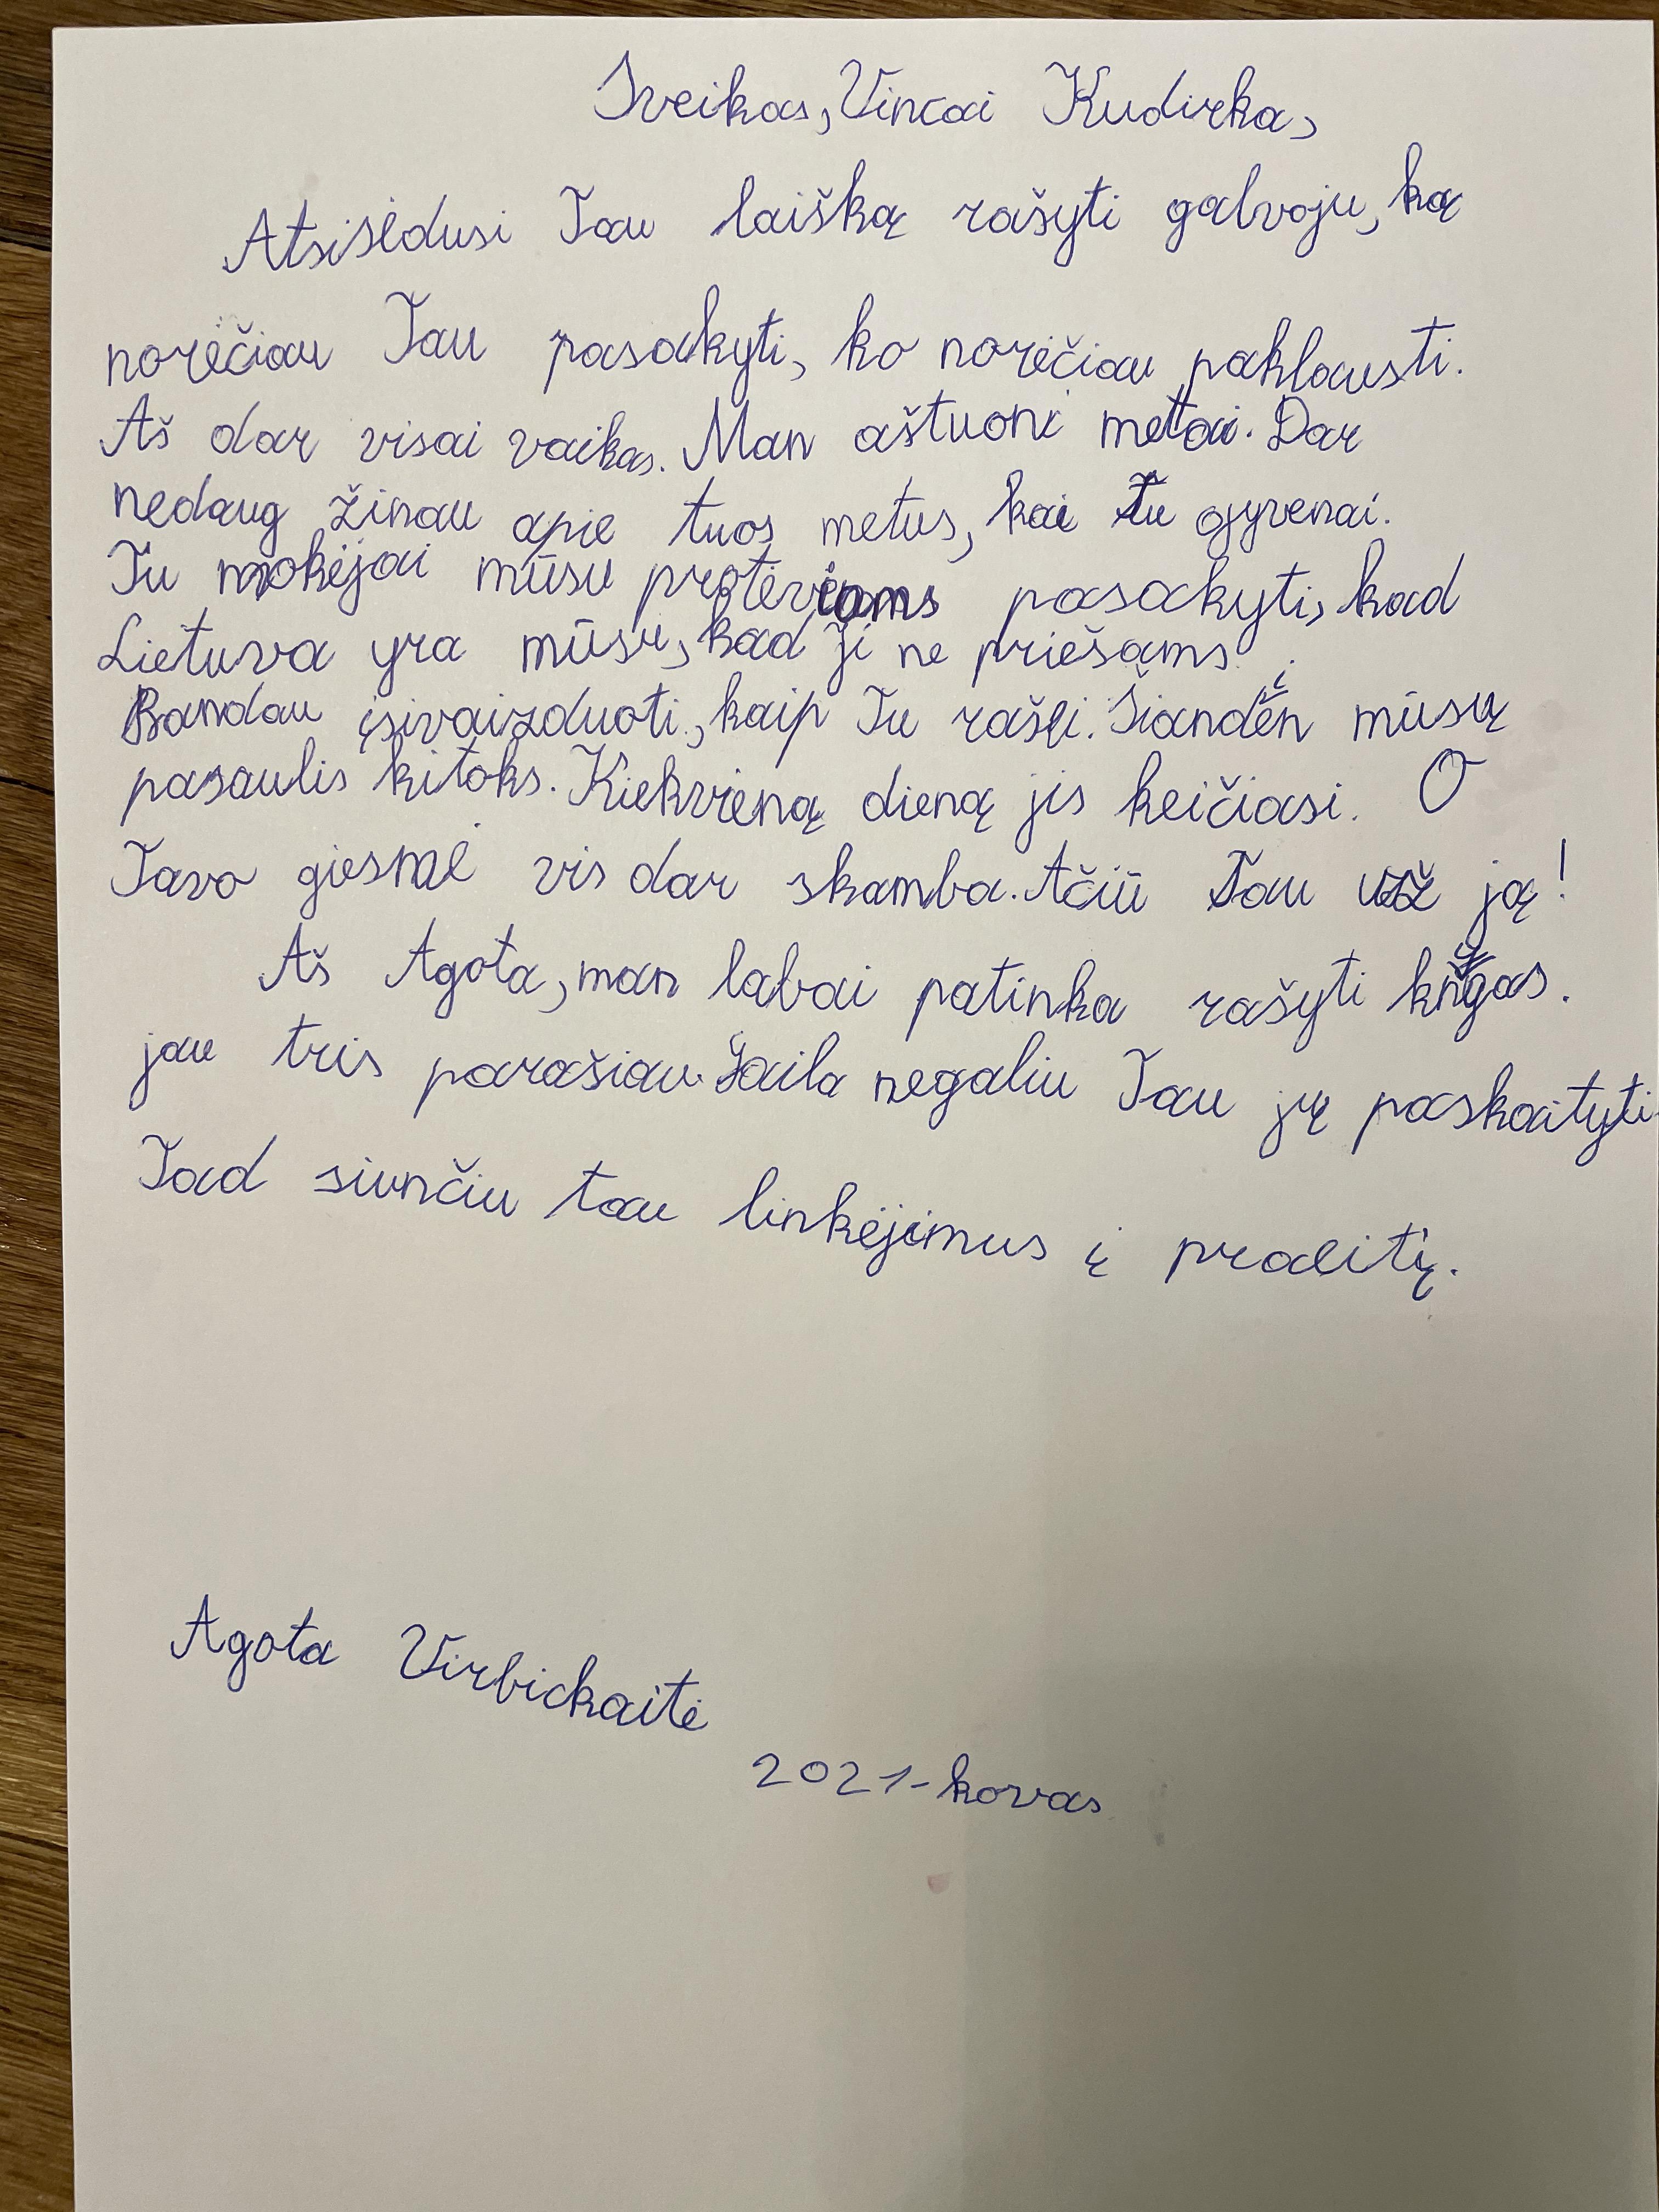 Sveikas, Vincai Kudirka,
Atsisėdusi Tau laišką rašyti galvoju, ką
norėčiau Tau pasakyti, ko norėčiau paklausti.
Aš dar visai vaikas. Man aštuoni metai. Dar
nedaug žinau apie tuos metus, kai Tu gyvenai.
Tu mokėjai mūsų protėviams pasakyti, kad
Lietuva yra mūsų, kad ji ne priešams.
Bandau įsivaizduoti, kaip Tu rašei. Šiandien mūsų
pasaulis kitoks. Kiekvieną dieną jis keičiasi. O
Tavo giesmė vis dar skamba. Ačiū Tau už ją!
Aš Agota, man labai patinka rašyti knygas.
jau tris parašiau. Gaila negaliu Tau jų paskaityti.
Tad siunčiu tau linkėjimus į praeitį.
Agota Virbickaitė
2021-kovas